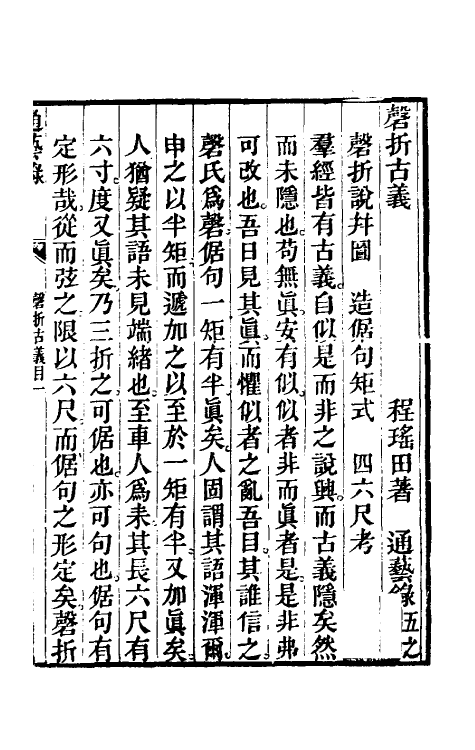 磬折古義　程瑤田著　通藝錄五之
磬折說幷圖　造倨句矩式　四六尺考
羣經皆有古義。自似是而非之說興。而古義隱矣。然
而未隱也。苟無眞。安有似。似者非而眞者是。是非弗
可改也。吾日見其眞。而懼似者之亂吾目。其誰信之
磬氏爲磬。倨句一矩有半。眞矣。人固謂其語渾渾爾。
申之以半矩而遞加之。以至於一矩有半。又加眞矣。
人猶疑其語未見端緒也。至車人爲耒。其長六尺有
六寸。度又眞矣。乃三折之。可倨也。亦可句也。倨句有
定形哉。從而弦之。限以六尺。而倨句之形定矣。磬折
通藝錄
磬折古義目
一